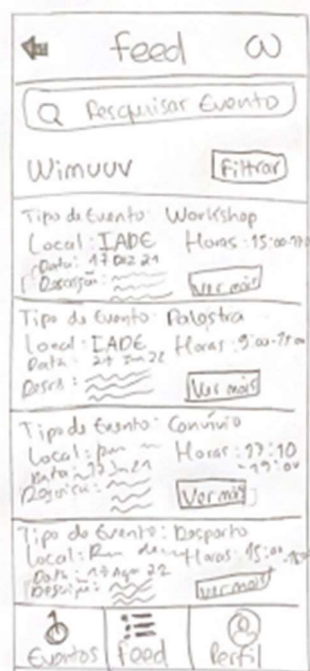 Feed W
Pesquisar Evento
Wimuuv Filtrar
Tipo de Evento: Workshop
Local: IADE Horas: 15:00
Data: 17 Dez 21
Descrição: Ver mais
Tipo de Evento: Palestra
Local: IADE Horas: 9:00
Data: Jan 22
Ver mais
Tipo de Evento: Convívio
Local: Horas: 17:10
Data: Jan 21 -19:00
Ver mais
Tipo do Evento: Desporto
Local: Horas: 15:00
Data: 17 Ago 22
Ver mais
Eventos Feed Perfil